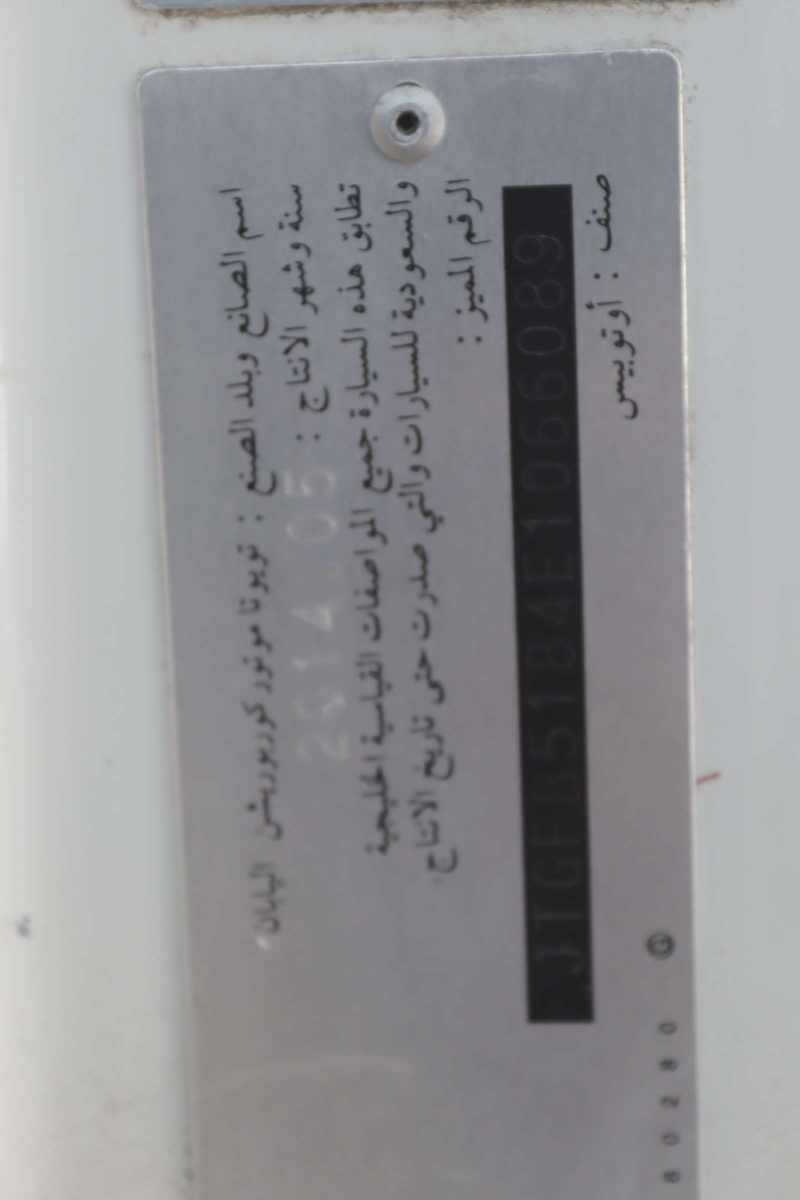 اسم الصانع وبلد الصنع : تويوتا موتور كوربوريشن اليابان
سنة وشهر الانتاج : 2014 05
تطابق هذه السيارة جميع المواصفات القياسية الخليجية
والسعودية للسيارات والتي صدرت حتى تاريخ الانتاج.
الرقم المميز :
JTGFB5184E1066089
صنف : أوتوبيس
60280 G